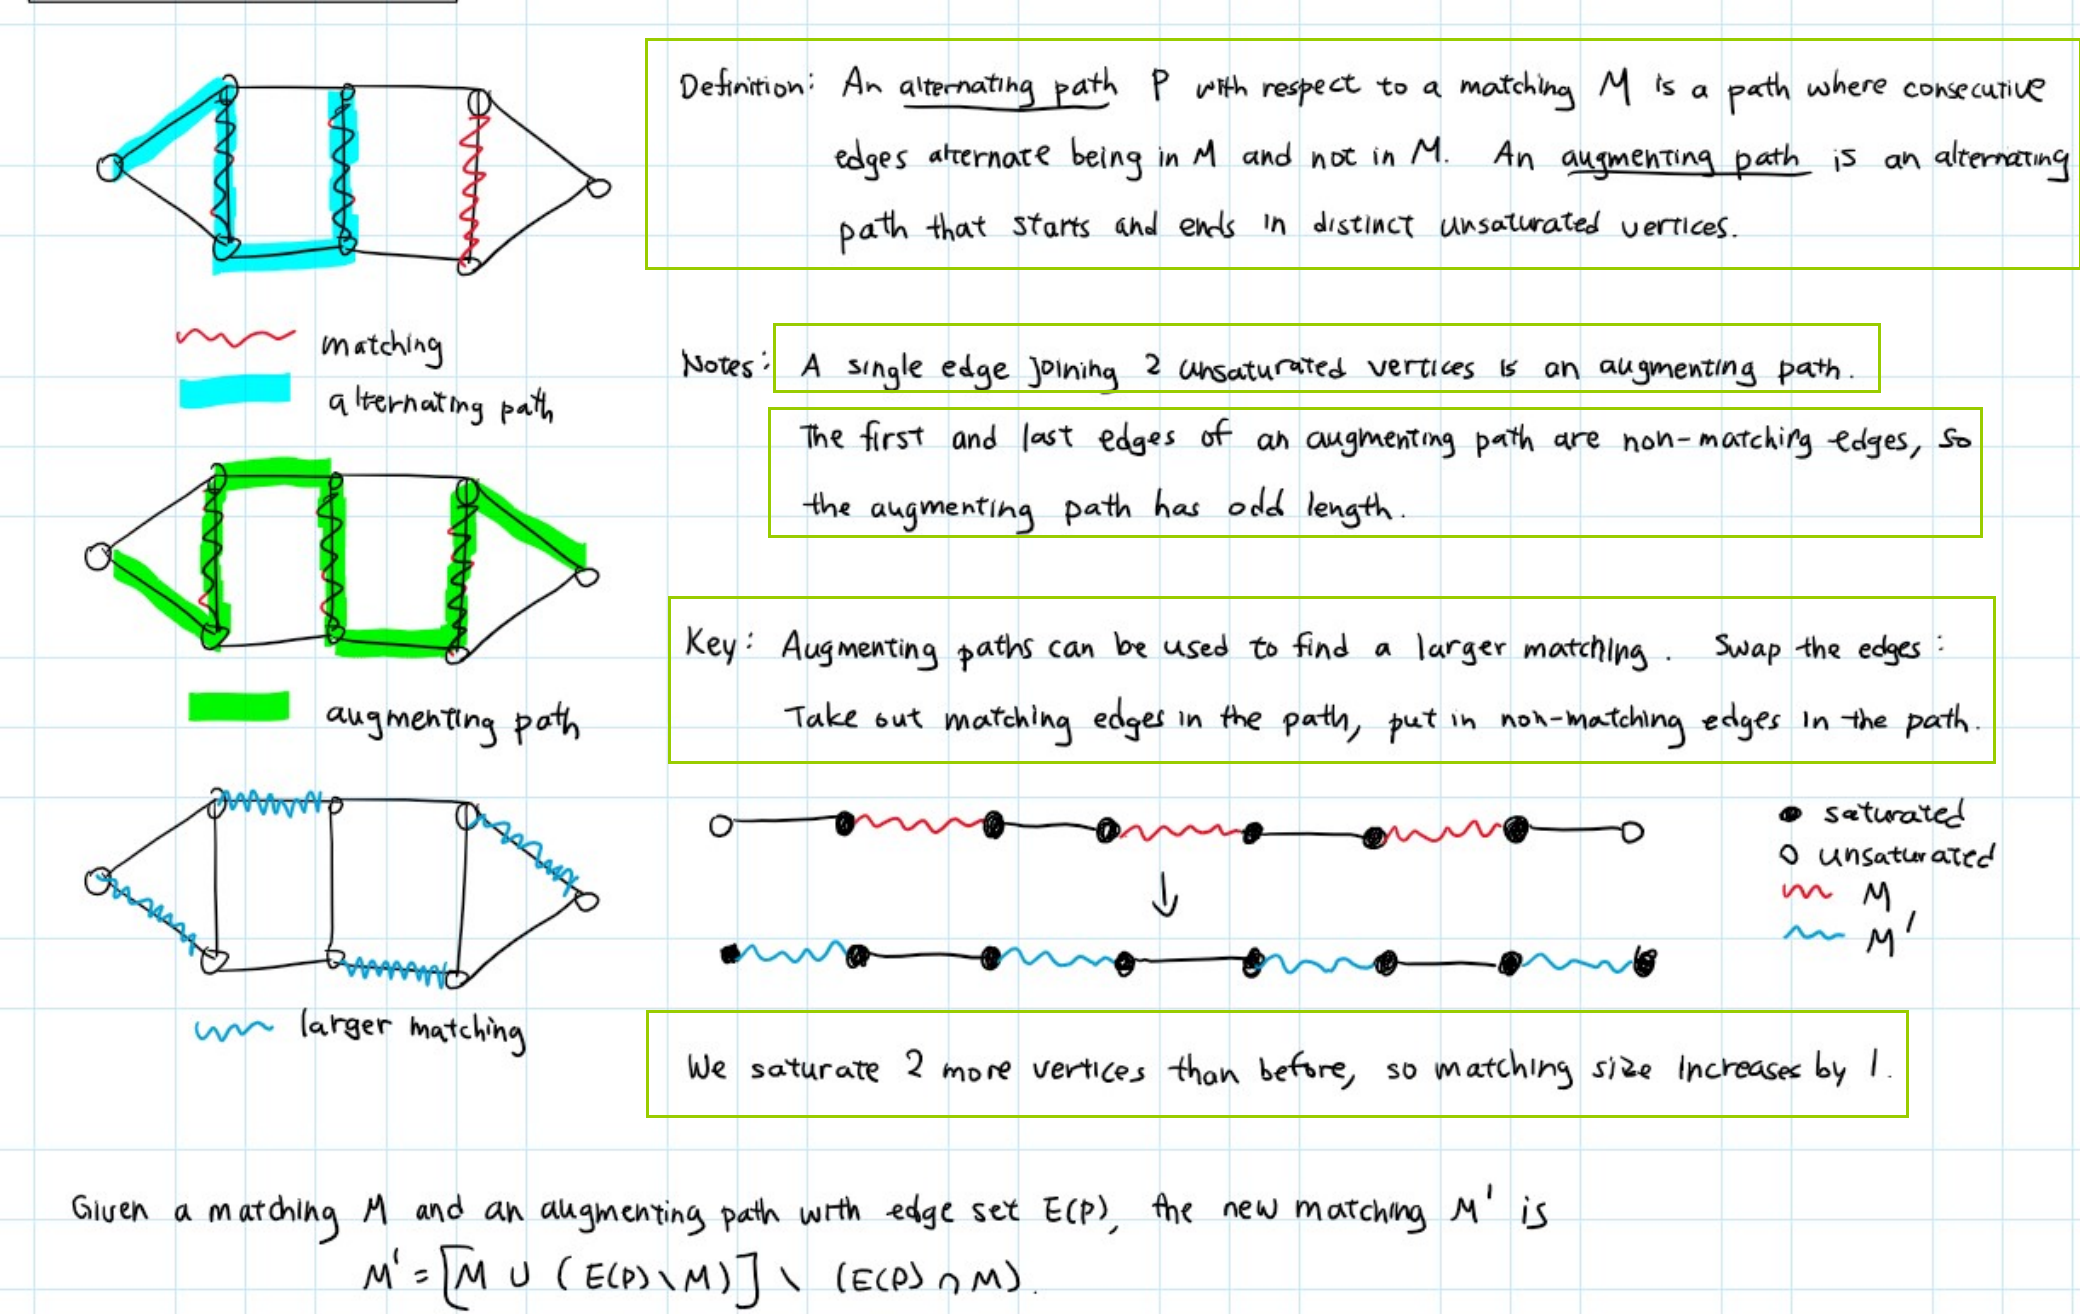 Definition: An alternating path P with respect to a matching M is a path where consecutive
edges alternate being in M and not in M. An augmenting path is an alternating
path that starts and ends in distinct unsaturated vertices.
matching
alternating path
Notes: A single edge joining 2 unsaturated vertices is an augmenting path.
The first and last edges of an augmenting path are non-matching edges, so
the augmenting path has odd length.
augmenting path
Key: Augmenting paths can be used to find a larger matching. Swap the edges:
Take out matching edges in the path, put in non-matching edges in the path.
saturated
unsaturated
M
M'
larger matching
We saturate 2 more vertices than before, so matching size increases by 1.
Given a matching M and an augmenting path with edge set E(P), the new matching M' is
M' = [M ∪ (E(P) \ M)] \ (E(P) ∩ M).